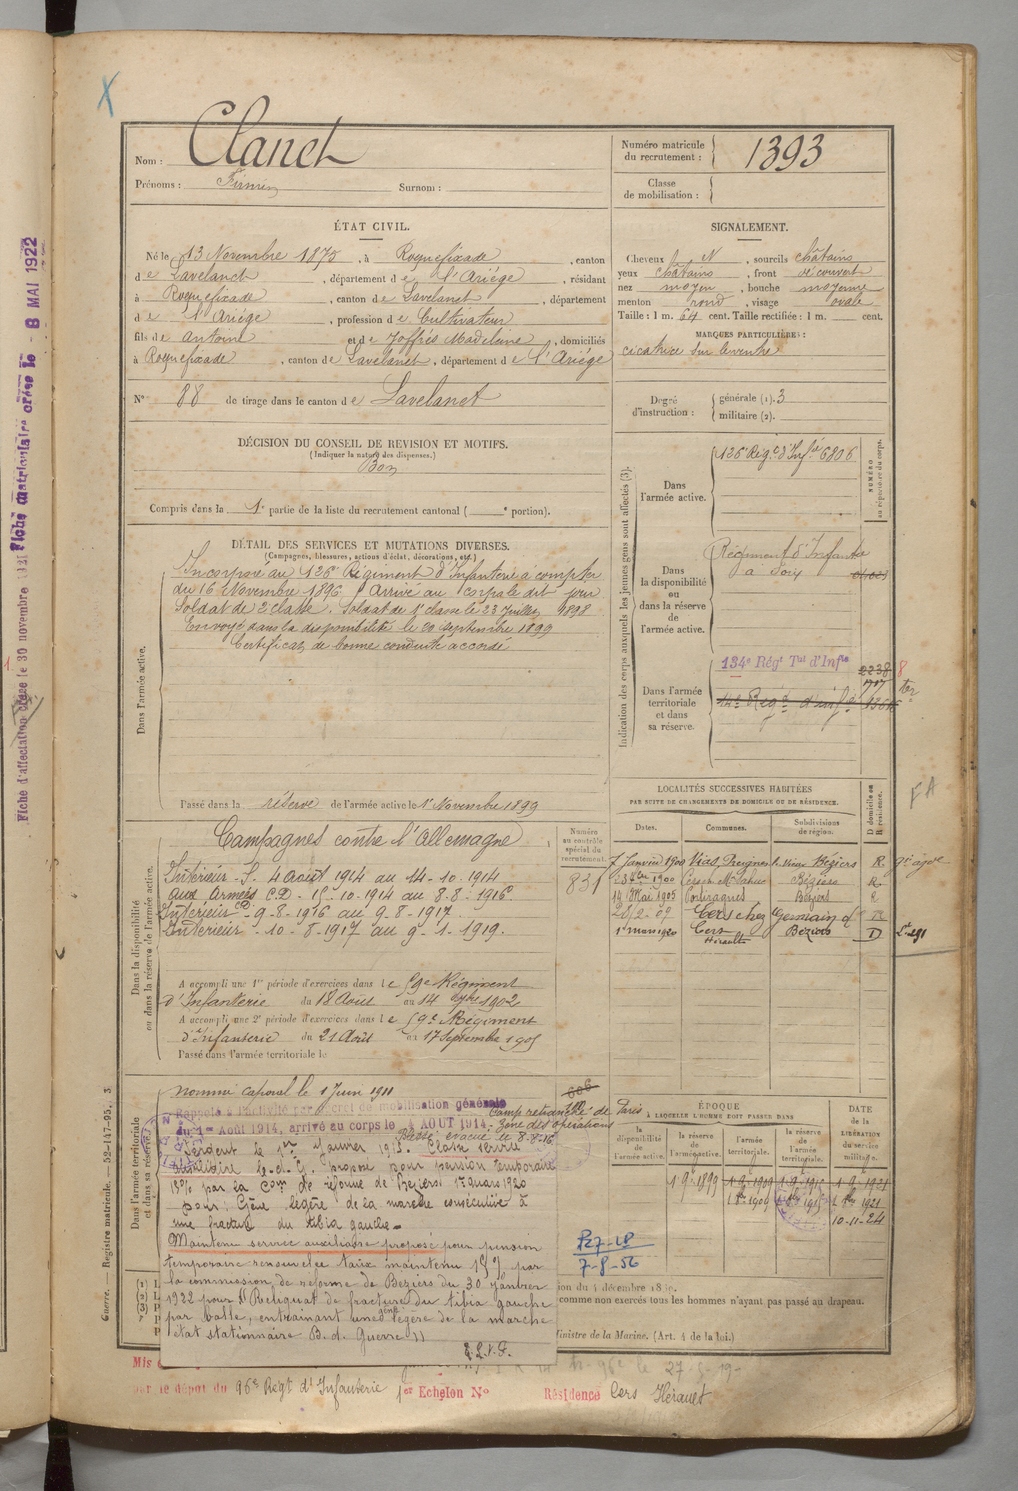 Nom : Clanet
Prénoms : Firmin Surnom :
Numéro matricule du recrutement : 1393
Classe de mobilisation :
ÉTAT CIVIL.
Né le 13 Novembre 1875, à Roquefixade, canton
de Lavelanet, département de l'Ariège, résidant
à Roquefixade, canton de Lavelanet, département
de l'Ariège, profession de Cultivateur
fils de Antoine et de Joffrès Madeleine, domiciliés
à Roquefixade, canton de Lavelanet, département de l'Ariège
N° 88 de tirage dans le canton de Lavelanet
SIGNALEMENT.
Cheveux N, sourcils châtains
yeux châtains, front découvert
nez moyen, bouche moyenne
menton rond, visage ovale
Taille : 1 m. 64 cent. Taille rectifiée : 1 m. cent.
MARQUES PARTICULIÈRES :
cicatrice sur le ventre
Degré d'instruction : générale (1). 3
militaire (2).
DÉCISION DU CONSEIL DE REVISION ET MOTIFS.
(Indiquer la nature des dispenses.)
Bon
Compris dans la 1e partie de la liste du recrutement cantonal ( e portion).
DÉTAIL DES SERVICES ET MUTATIONS DIVERSES.
(Campagnes, blessures, actions d'éclat, décorations, etc.)
Dans l'armée active.
Incorporé au 126e Régiment d'Infanterie à compter
du 16 Novembre 1896. Arrivé au corps le dit jour
Soldat de 2e classe. Soldat de 1e classe le 23 Juillet 1898
Envoyé dans la disponibilité le 20 septembre 1899
Certificat de bonne conduite accordé
Passé dans la réserve de l'armée active le 1r Novembre 1899
Indication des corps auxquels les jeunes gens sont affectés (3).
NUMÉRO au répertoire du corps.
Dans l'armée active. 126e Régt d'Infie 6806
Dans la disponibilité ou dans la réserve de l'armée active. Régiment d'Infante
à Foix
Dans l'armée territoriale et dans sa réserve. 134e Régt Tal d'Infie
2238 8
ter
LOCALITÉS SUCCESSIVES HABITÉES
PAR SUITE DE CHANGEMENTS DE DOMICILE OU DE RÉSIDENCE.
Dates. Communes. Subdivisions de région. D domicile ou R résidence.
7 Janvier 1900 Vias Béziers R.
1900 Béziers R.
14 Mai 1905 Portiragnes Béziers R
Cers chez Germain R
1r mars 1920 Cers Hérault Béziers D
FA
Dans la disponibilité ou dans la réserve de l'armée active.
Campagnes contre l'Allemagne
Intérieur S. 4 août 1914 au 14-10-1914
aux Armées C.D. 15-10-1914 au 8-8-1916
Intérieur CD 9-8-1916 au 9-8-1917
Intérieur - 10-8-1917 au 9-1-1919.
Numéro au contrôle spécial du recrutement.
831
A accompli une 1re période d'exercices dans le Régiment
d'Infanterie du 18 Août au 14 1902
A accompli une 2e période d'exercices dans le Régiment
d'Infanterie du 21 Août au 17 Septembre 1905
Passé dans l'armée territoriale le
Dans l'armée territoriale et dans sa réserve
nommé caporal le 1 Juin 1911
Rappelé à l'activité par décret de mobilisation générale
du 1er Août 1914, arrivé au corps le 4 AOUT 1914. Camp retranché de Paris
Zone des opérations
Blessé évacué le 8-8-16
Sergent le 1er Janvier 1915. Classé service
auxiliaire proposé pour pension temporaire
15% par la Com de réforme de Béziers 17 mars 1920
pour : Gêne légère de la marche consécutive à
une fracture du tibia gauche.
Maintenu service auxiliaire proposé pour pension
temporaire renouvelée taux maintenu 15% par
la commission de réforme de Béziers du 30 janvier
1922 pour : Reliquat de fracture du tibia gauche
par balle, entrainant une gêne légère de la marche
état stationnaire B. d. Guerre
ÉPOQUE
À LAQUELLE L'HOMME DOIT PASSER DANS
DATE DE LA LIBÉRATION DU SERVICE MILITAIRE.
la disponibilité de l'armée active. la réserve de l'armée active. l'armée territoriale. la réserve de l'armée territoriale.
1-9-1899 1-9-1909 1-9-1915 1-9-1921
10-11-24
7-8-56
ion du 4 décembre
comme non exercés tous les hommes n'ayant pas passé au drapeau.
Ministre de la Marine. (Art. 4 de la loi.)
Mis
par le dépôt du 96e Régt d'Infanterie 1er Echelon N° Résidence Cers Hérault
Guerre. — Registre matricule. — 52-147-95.
Fiche d'affectation créée le 30 novembre 1921
Fiche matriculaire créée le - 8 MAI 1922